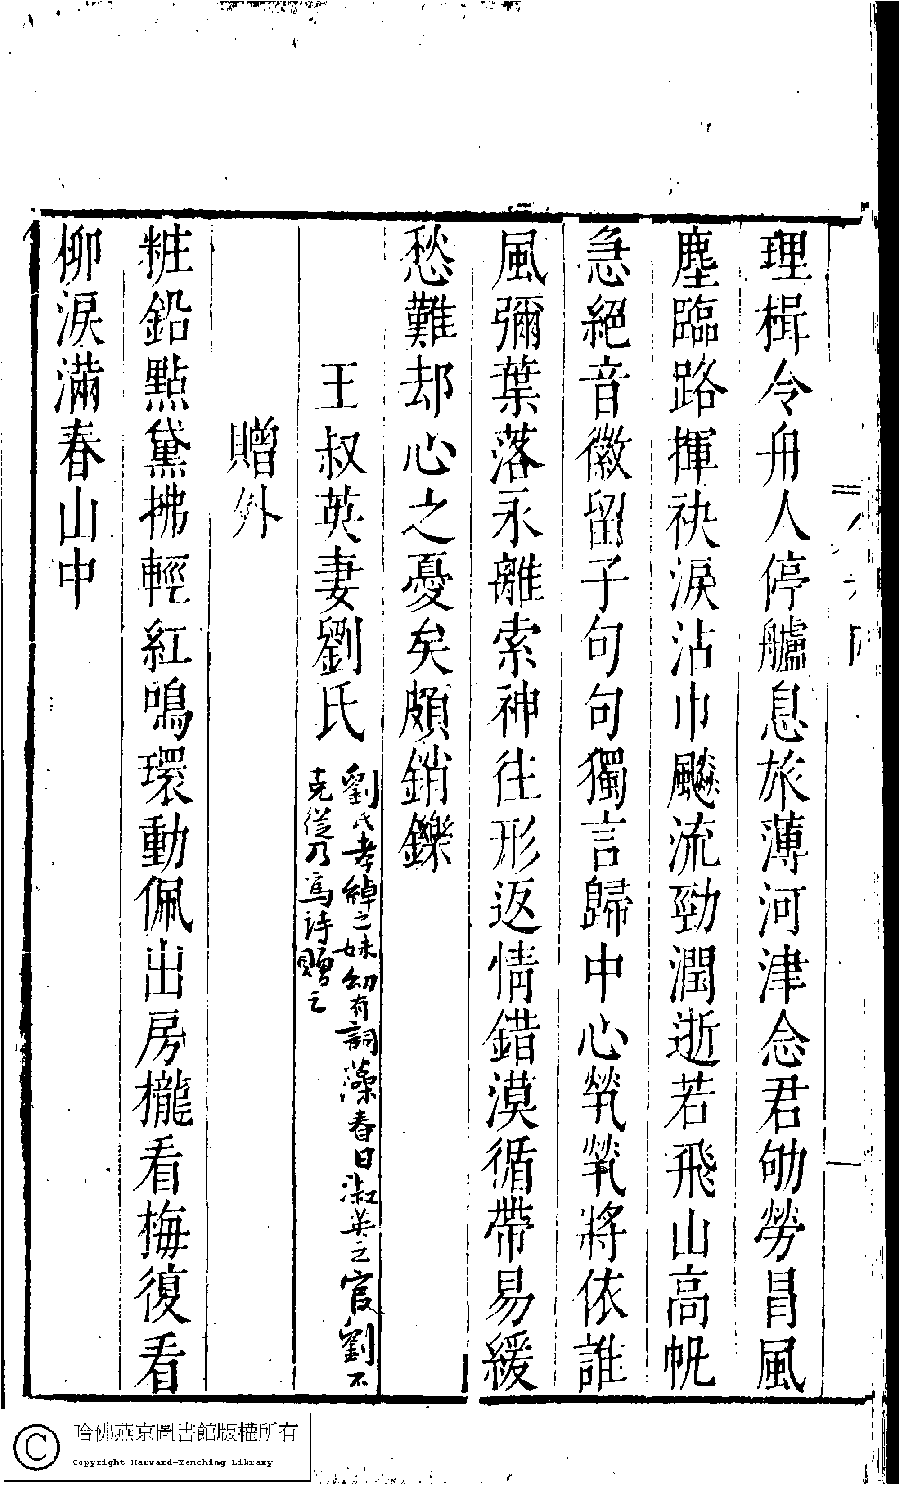 理楫令舟人停艫息旅薄河津念君劬勞冒風
塵臨路揮袂淚沾巾飈流勁潤逝若飛山高帆
急絕音徽留子句句獨言歸中心煢煢將依誰
風彌葉落永離索神往形返情錯漠循帶易緩
愁難却心之憂矣頗銷鑠
王叔英妻劉氏
劉氏孝綽之妹幼有詞藻春日淑英之宦劉不
克從乃為詩贈之
贈外
粧鉛點黛拂輕紅鳴環動佩出房櫳看梅復看
柳淚滿春山中
哈佛燕京圖書館版權所有
Copyright Harvard-Yenching Library